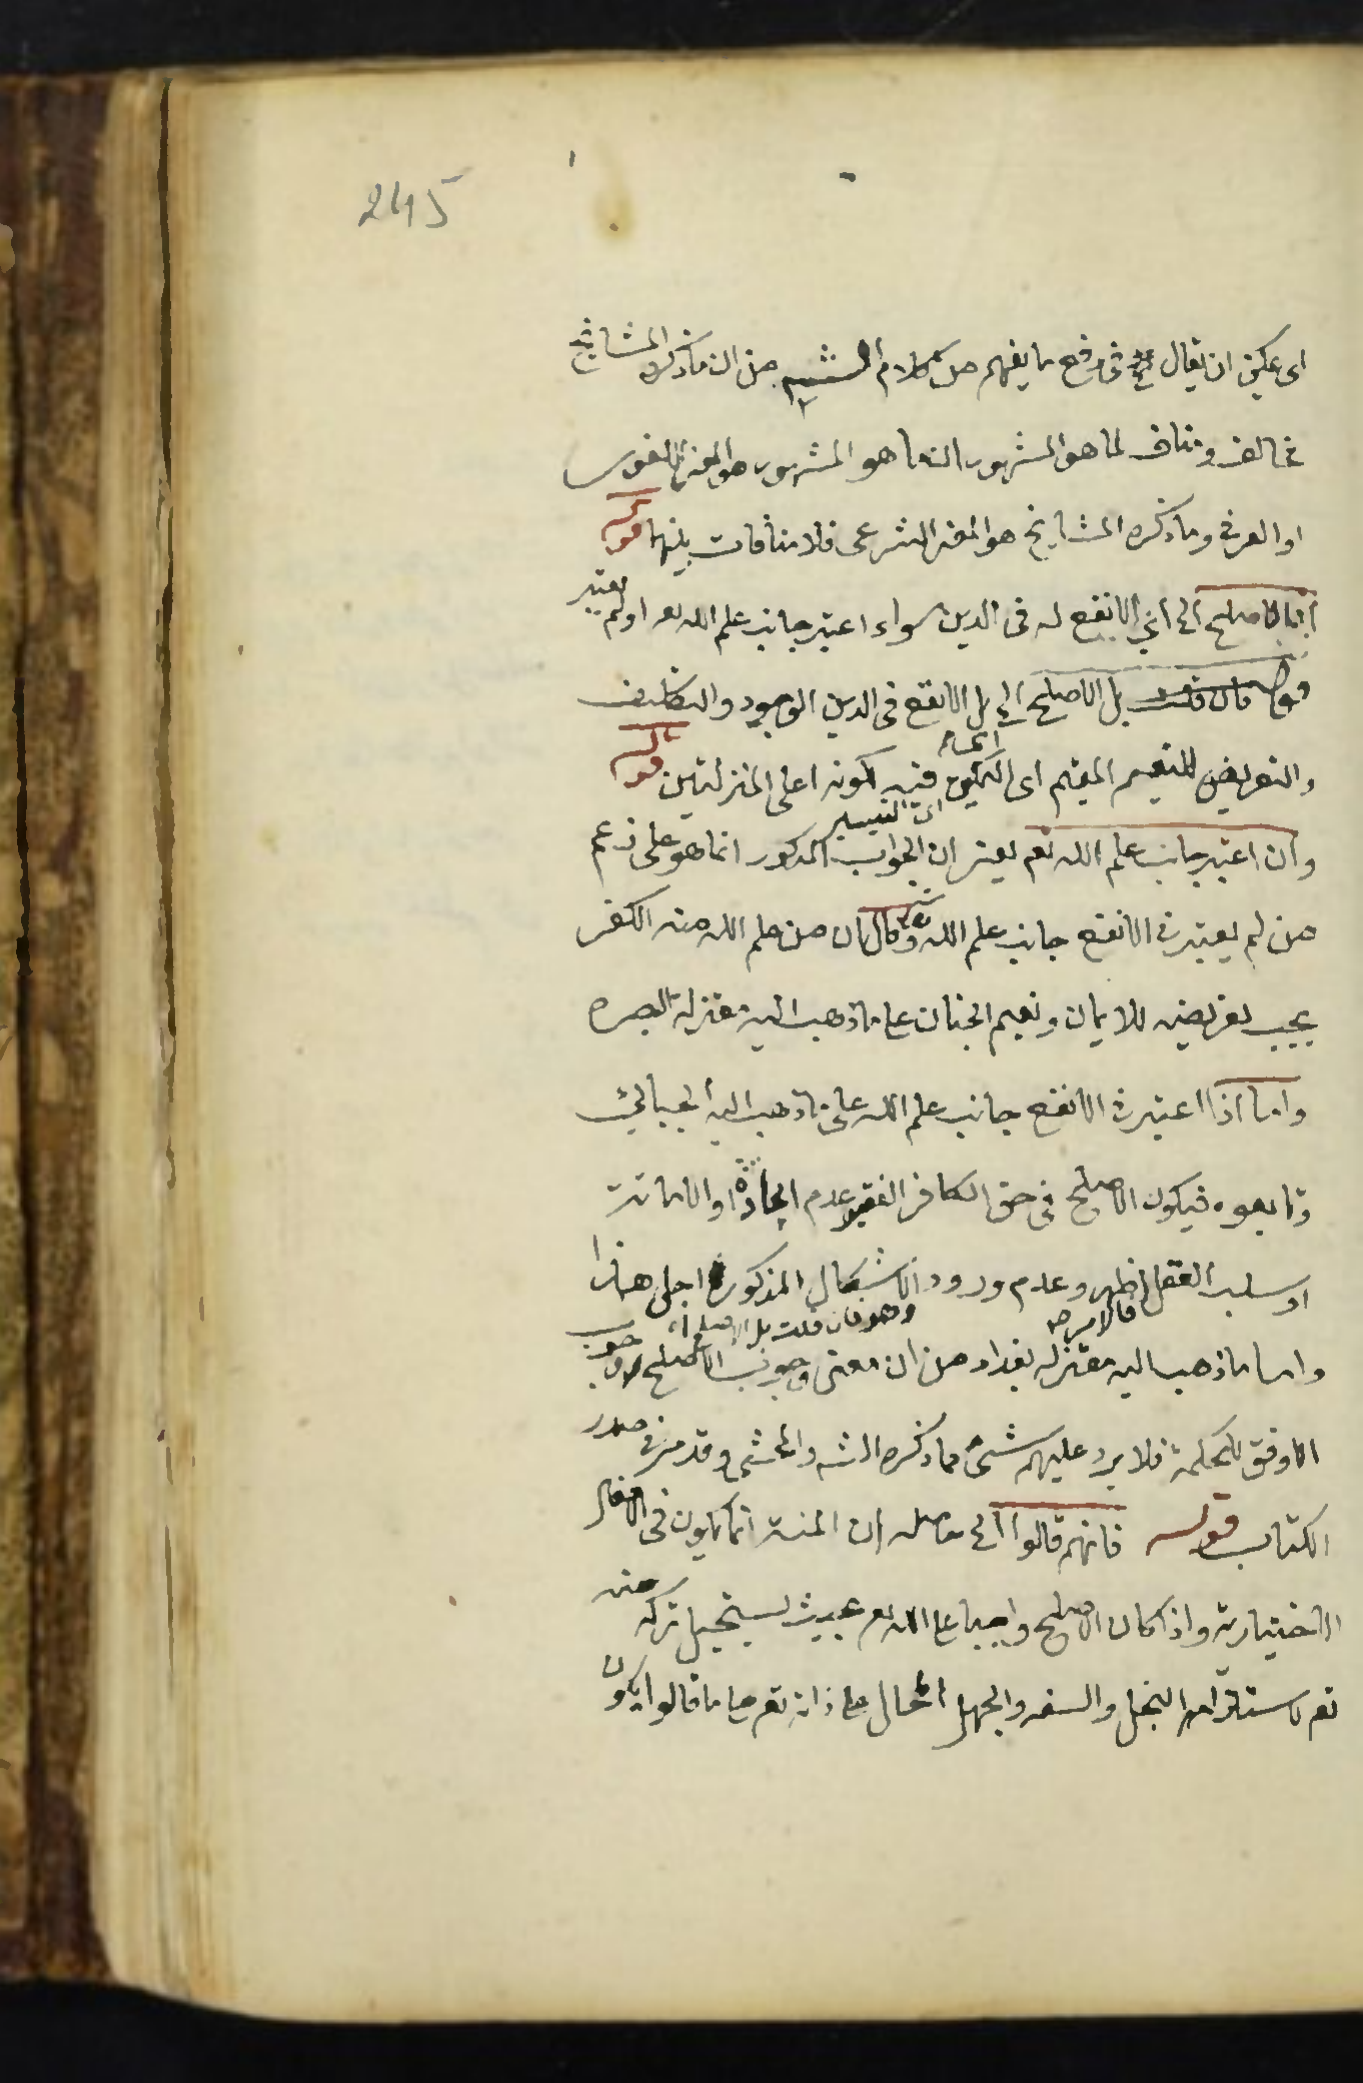 245
اى يمكن ان يقال فى دفع ما يفهم من كلام من ان ما ذكره المشايخ
مخالف ومناف لما هو المشهور ان ما هو المشهور هو المعنى اللغوى
او العرفى وما ذكره المشايخ هو المعنى الشرعى فلا منافات بينهما قوله
الاصلح الخ اى الانفع له فى الدين سواء اعتبر جانب علم الله تعم او لم يعتبر
قوله فان قلت بل الاصلح الخ بل الانفع فى الدين الوجود والتكليف
والتعريض للنعيم المقيم اى فيه لكونه اعلى المنزلتين قوله
وان اعتبر جانب علم الله تعم يعنى ان الجواب المذكور انما هو على زعم
من لم يعتبر فى الانفع جانب علم الله وقال ان من علم الله منه الكفر
يجب تعريضه للايمان ونعيم الجنان على ما ذهب اليه معتزلة البصره
واما اذا اعتبر فى الانفع جانب علم الله على ما ذهب اليه الجبائى
وتابعوه فيكون الاصلح فى حق الكافر الفقير عدم ايجاده او الاماتة
او سلب العقل فالامر اظهر وعدم ورود الاشكال المذكور اجلى هذا
وهو فان قلت بل الاصلح الخ
واما ما ذهب اليه معتزله بغداد من ان معنى وجوب الاصلح وجوب
الاوفق للحكمة فلا يرد عليهم شئ مما ذكره الشه والمحشى وقد مر فى صدر
الكتاب قوله فانهم قالوا الخ حاصله ان المنة انما يكون فى الافعال
الاختيارية واذا كان الاصلح واجبا على الله تعم بحيث يستحيل تركه منه
تعم لاستلزامه البخل والسفه والجهل المحال على ذاته تعم على ما قالوا يكون